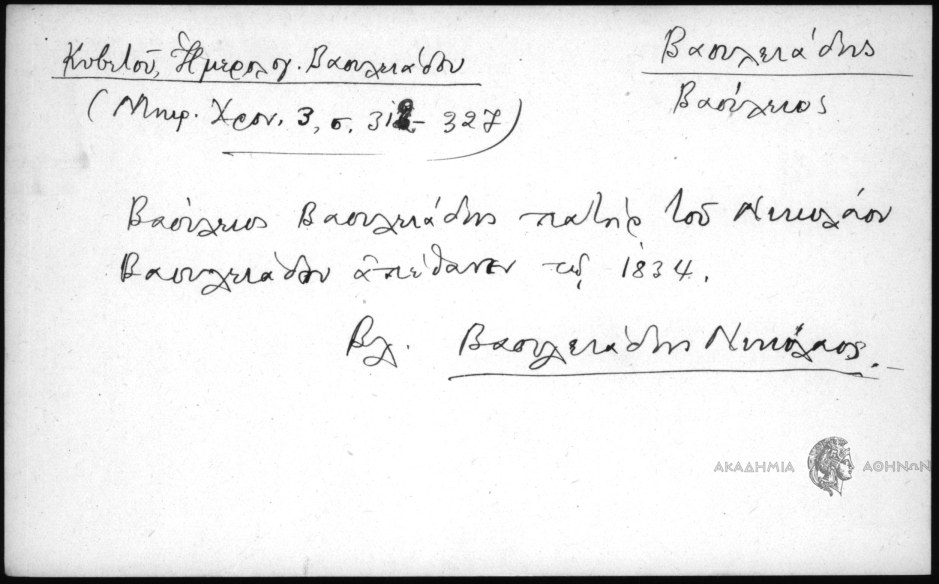 Κυβετοῦ, Ἡμερολογ. Βασιλειάδου
(Μικρ. Χρον. 3, σ. 312 - 327)
Βασιλειάδης
Βασίλειος
Βασίλειος Βασιλειάδης πατὴρ τοῦ Νικολάου
Βασιλειάδου ἀπέθανεν τῷ 1834.
Βλ. Βασιλειάδης Νικόλαος.
ΑΚΑΔΗΜΙΑ ΑΘΗΝΩΝ